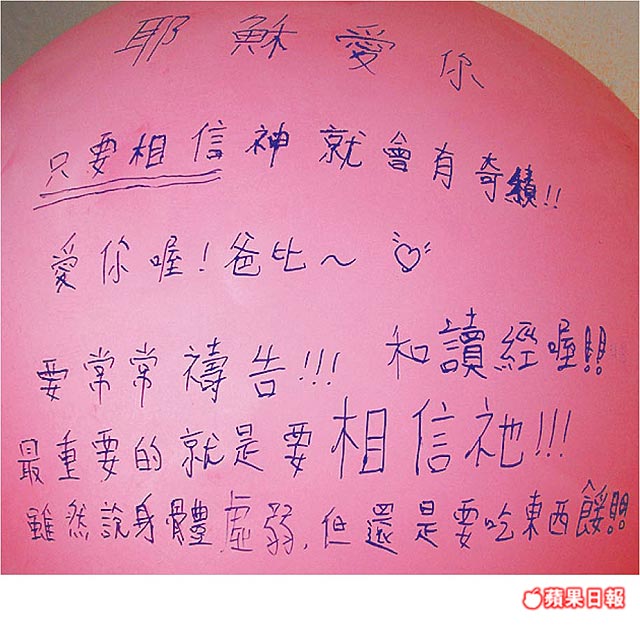 耶穌愛你
只要相信神就會有奇績!!
愛你喔!爸比~♡
要常常禱告!!! 和讀經喔!!
最重要的就是要相信祂!!!
雖然說身體虛弱,但還是要吃東西餒!!!
蘋果日報